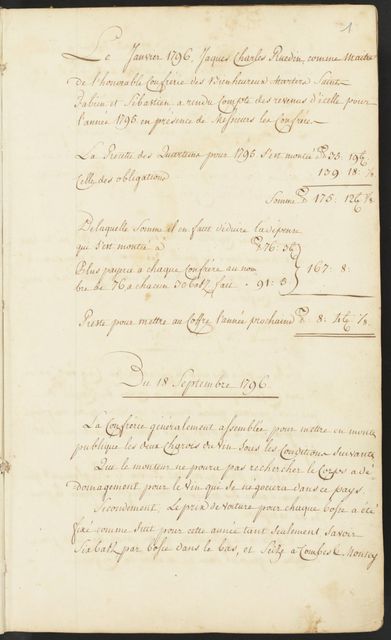 1
Le Janvier 1796. Jaques Charles Ruedin, comme Maitre
de l'honorable Confrérie des Bienheureux Martirs Saint
Fabien et Sébastien a rendu Compte des revenus d'icelle pour
l'année 1795 en présence de Messieurs les Confrére
La Recette des Quartiens pour 1795 S'est montée 35: 19
Celle des obligations 139 18: 1/2
Somme 175: 12 1/2
Delaquelle Somme il en faut déduire la dépense
qui s'est montée à 76: 5
Plus payer à chaque Confrère au nom 167: 8:
bre de 76 a chacun 30 batz fait 91: 3
Reste pour mettre au Coffre l'année prochaine 8: 4 1/2
Du 18 Septembre 1796
La Confrérie généralement assemblée pour mettre en monte
publique les deux Chariots du vin sous les Conditions suivantes
Que le monteur ne pourra pas rechercher le Corps a dé
domagement pour le vin que se négociera dans ce pays.
Secondement, Le prix de voiture pour chaque bosse a été
fixé comme suit pour cette année tant seulement Savoir
Six batz par bosse dans le bas, et Seize a Combes &